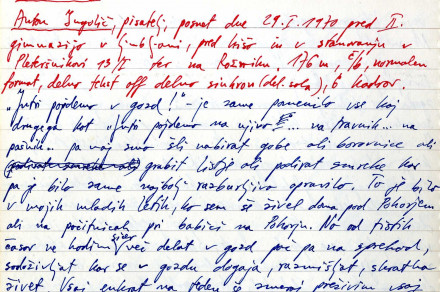 Anton Ingolič, pisatelj, posnet dne 29. I. 1970 pred II.
gimnazijo v Ljubljani, pred hišo in v stanovanju v
Pleteršnikovi 13/I ter na Rožniku. 176 m, č/b, normalen
format, delno tekst off delno sinhron (del. sola), 6 kadrov.
"Jutri pojdemo v gozd!" - je zame pomenilo vse kaj
drugega kot "Jutri pojdemo na njivo ... na travnik... na
pašnik.. pa naj smo šli nabirat gobe ali borovnice ali
grabit listje ali podirat smreke kar
pa je bilo zame najbolj razburljivo opravilo. To je bilo
v mojih mladih letih, ko sem še živel doma pod Pohorjem
ali na počitnicah pri babici na Pohorju. No od tistih
časov ne hodim sicer več delat v gozd pač pa na sprehod,
dogaja, razmišljat, skratka
živet. Vsaj enkrat na teden če zmoraj preživim vsaj